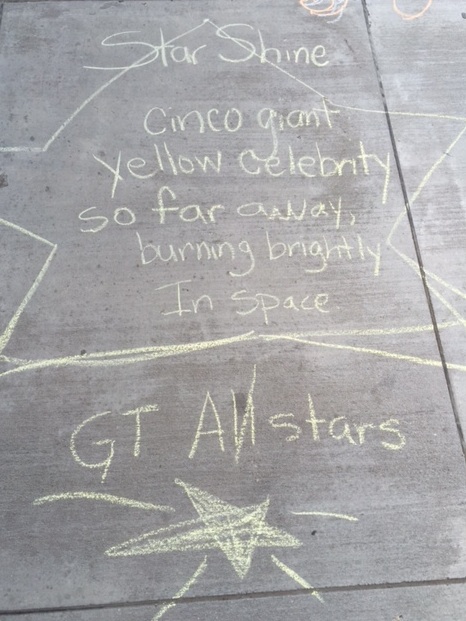 Star Shine
cinco giant
yellow celebrity
so far away,
burning brightly
In space
GT All stars